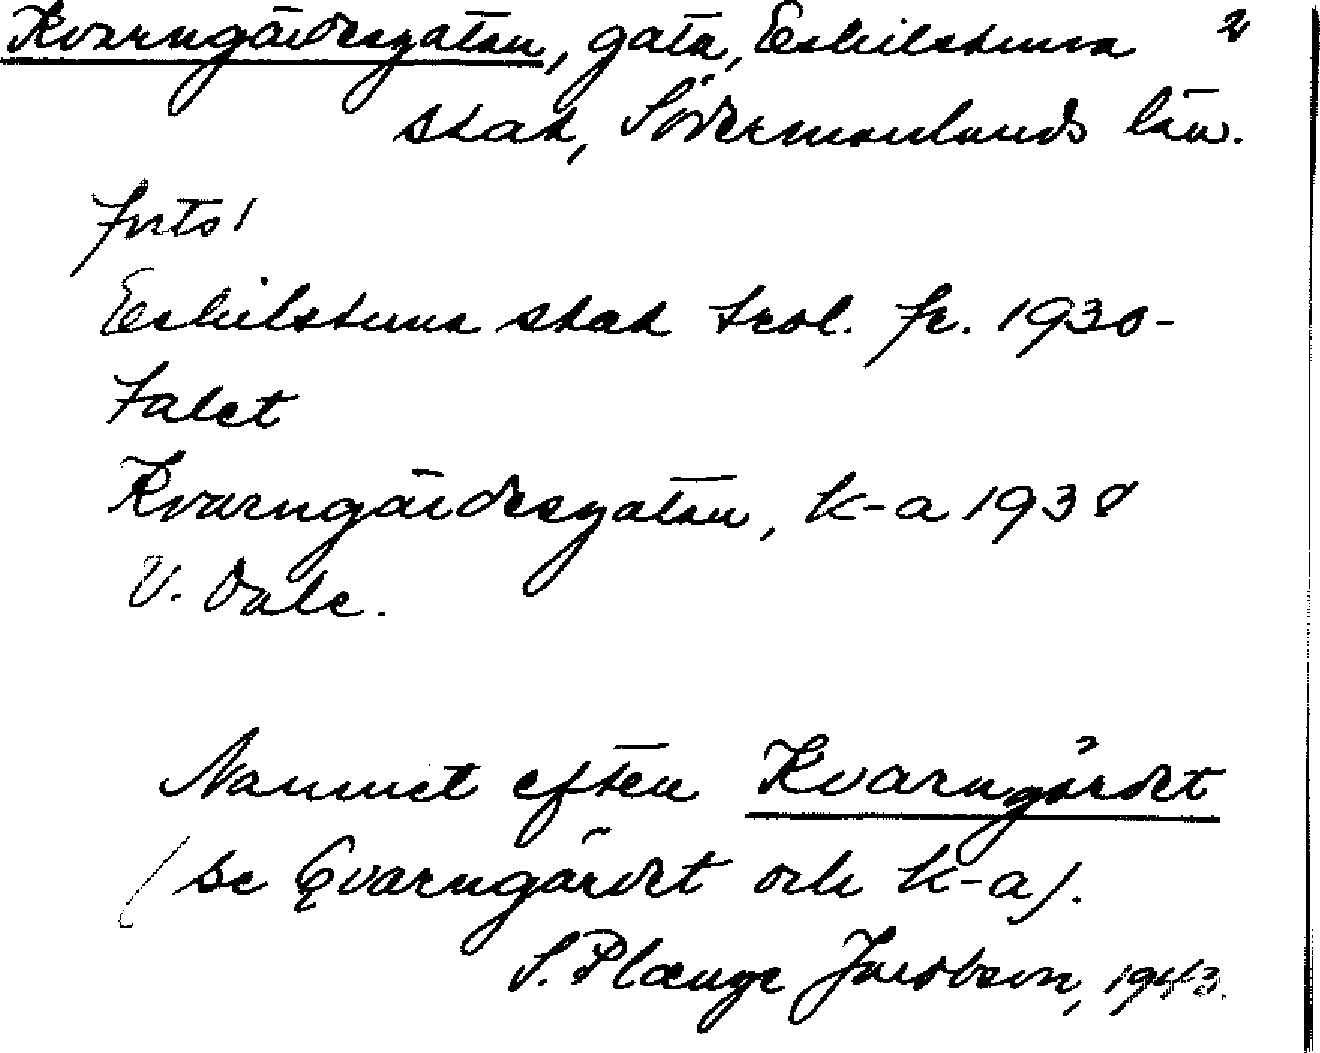 Kvarngärdesgatan, gata, Eskilstuna 2
stad, Södermanlands län.
forts!
Eskilstuna stad trol. fr. 1930-
talet
Kvarngärdesgatan, k-a 1938
V. Dale.
Namnet efter Kvarngärdet
(se Qvarngärdet och k-a).
S. Plænge Jacobson, 1943.